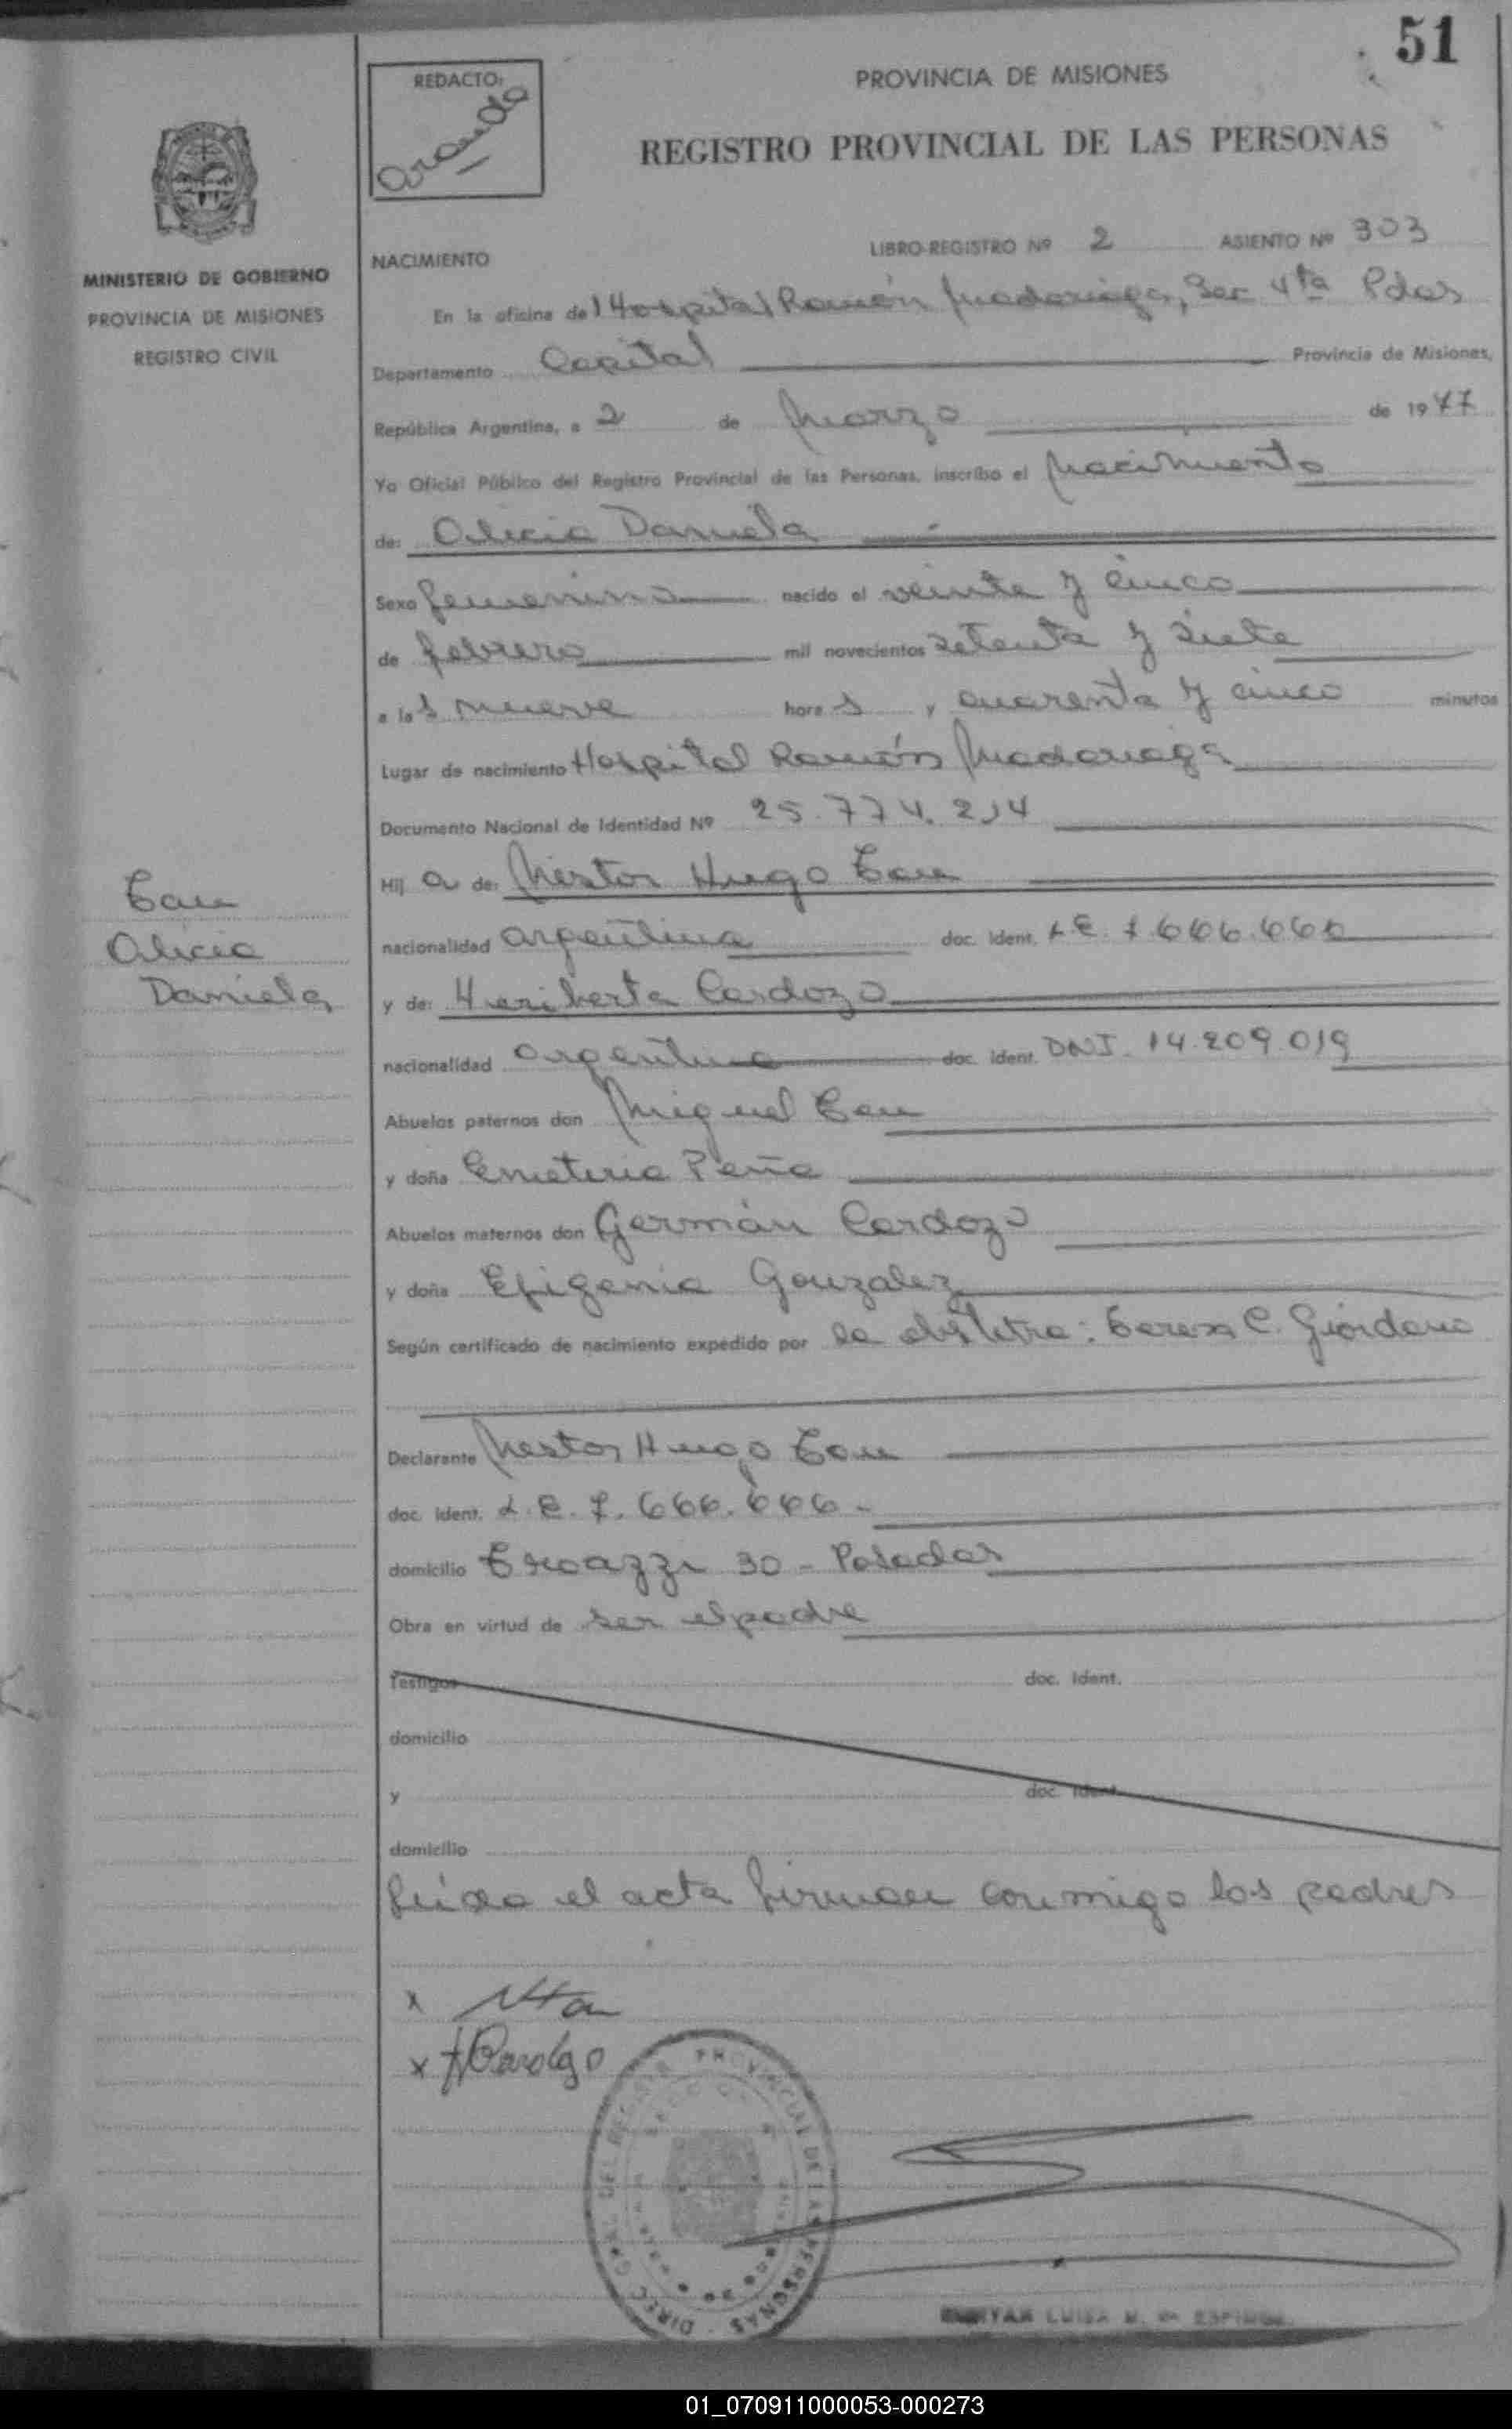 51
REDACTO:
Aranda
PROVINCIA DE MISIONES
REGISTRO PROVINCIAL DE LAS PERSONAS
MINISTERIO DE GOBIERNO
PROVINCIA DE MISIONES
REGISTRO CIVIL
NACIMIENTO
LIBRO-REGISTRO Nº 2 ASIENTO Nº 303
En la oficina del Hospital Ramón Madariaga, Sec 4ta Pdas
Departamento Capital Provincia de Misiones,
República Argentina, a 2 de Marzo de 1977
Yo Oficial Público del Registro Provincial de las Personas, inscribo el Nacimiento
de: Alicia Daniela
Sexo femenino nacido el veinte y cinco
de febrero mil novecientos setenta y siete
a las nueve horas y cuarenta y cinco minutos
Lugar de nacimiento Hospital Ramón Madariaga
Documento Nacional de Identidad Nº 25.774.214
Hija de: Néstor Hugo Tau
nacionalidad argentina doc. ident. L.E. 7.666.666
y de: Heriberta Cardozo
nacionalidad argentina doc. ident. DNI. 14.209.019
Abuelos paternos don Miguel Tau
y doña Emeteria Peña
Abuelos maternos don Germán Cardozo
y doña Efigenia Gonzalez
Según certificado de nacimiento expedido por la obstetra: Teresa C. Giordano
Declarante Nestor Hugo Tau
doc. ident. L.E. 7.666.666-
domicilio 30 - Posadas
Obra en virtud de ser el padre
Testigos doc. ident.
domicilio
y doc. ident.
domicilio
Leída el acta firman conmigo los padres
Tau
Alicia
Daniela
x NHTau
x HCardozo
DIREC. GRAL. DEL REGISTR. PROVINCIAL DE LAS PERSONAS
01_070911000053-000273